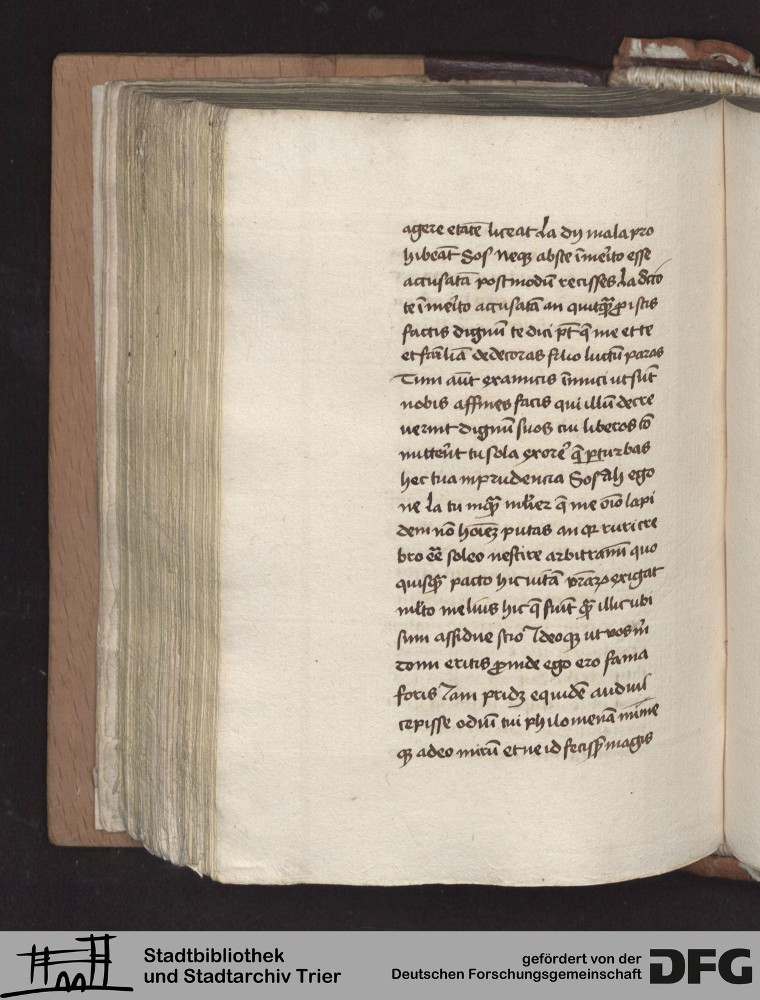 agere etatē liceat La dij mala pro
hibeāt Sos Neqꝫ abs te īmeͥto esse
accusatā postmodū rescisses La
te īmeͥto accusatā an quitꝗ̄ꝫ ꝓ istis
factis dignū te dici pt̄ q̄ me et te
et fāiliā dedecoras filio luctū paras
Tum aūt ex amicis īimici ut sūt
nobis affines facis qui illū decre
uerint dignū suos cui liberos cō
mitterēt tu sola exoreͬ q̄ ꝑturbas
hec tua inprudencia Sos ah ego
ne La tu inꝗ̄ꝫ mlͥier q̄ me oīo lapi
dem nō hoīeꝫ putas an qꝛ ruri cre
bro eē̄ soleo nescire arbitramī quo
quisꝗꝫ pacto hic uitā vrāꝝ exigat
mlͭo melius hic q̄ fiūt ꝗ̄ꝫ illic ubi
sum assidue scio Ideoqꝫ ut vos m̄
domi eritis ꝓinde ego ero fama
foris Iam prideꝫ equidē audiui
cepisse odiū tui philomenā
qꝫ adeo mirū et ne id fecissꝫ magis
Stadtbibliothek
und Stadtarchiv Trier
gefördert von der
Deutschen Forschungsgemeinschaft
DFG